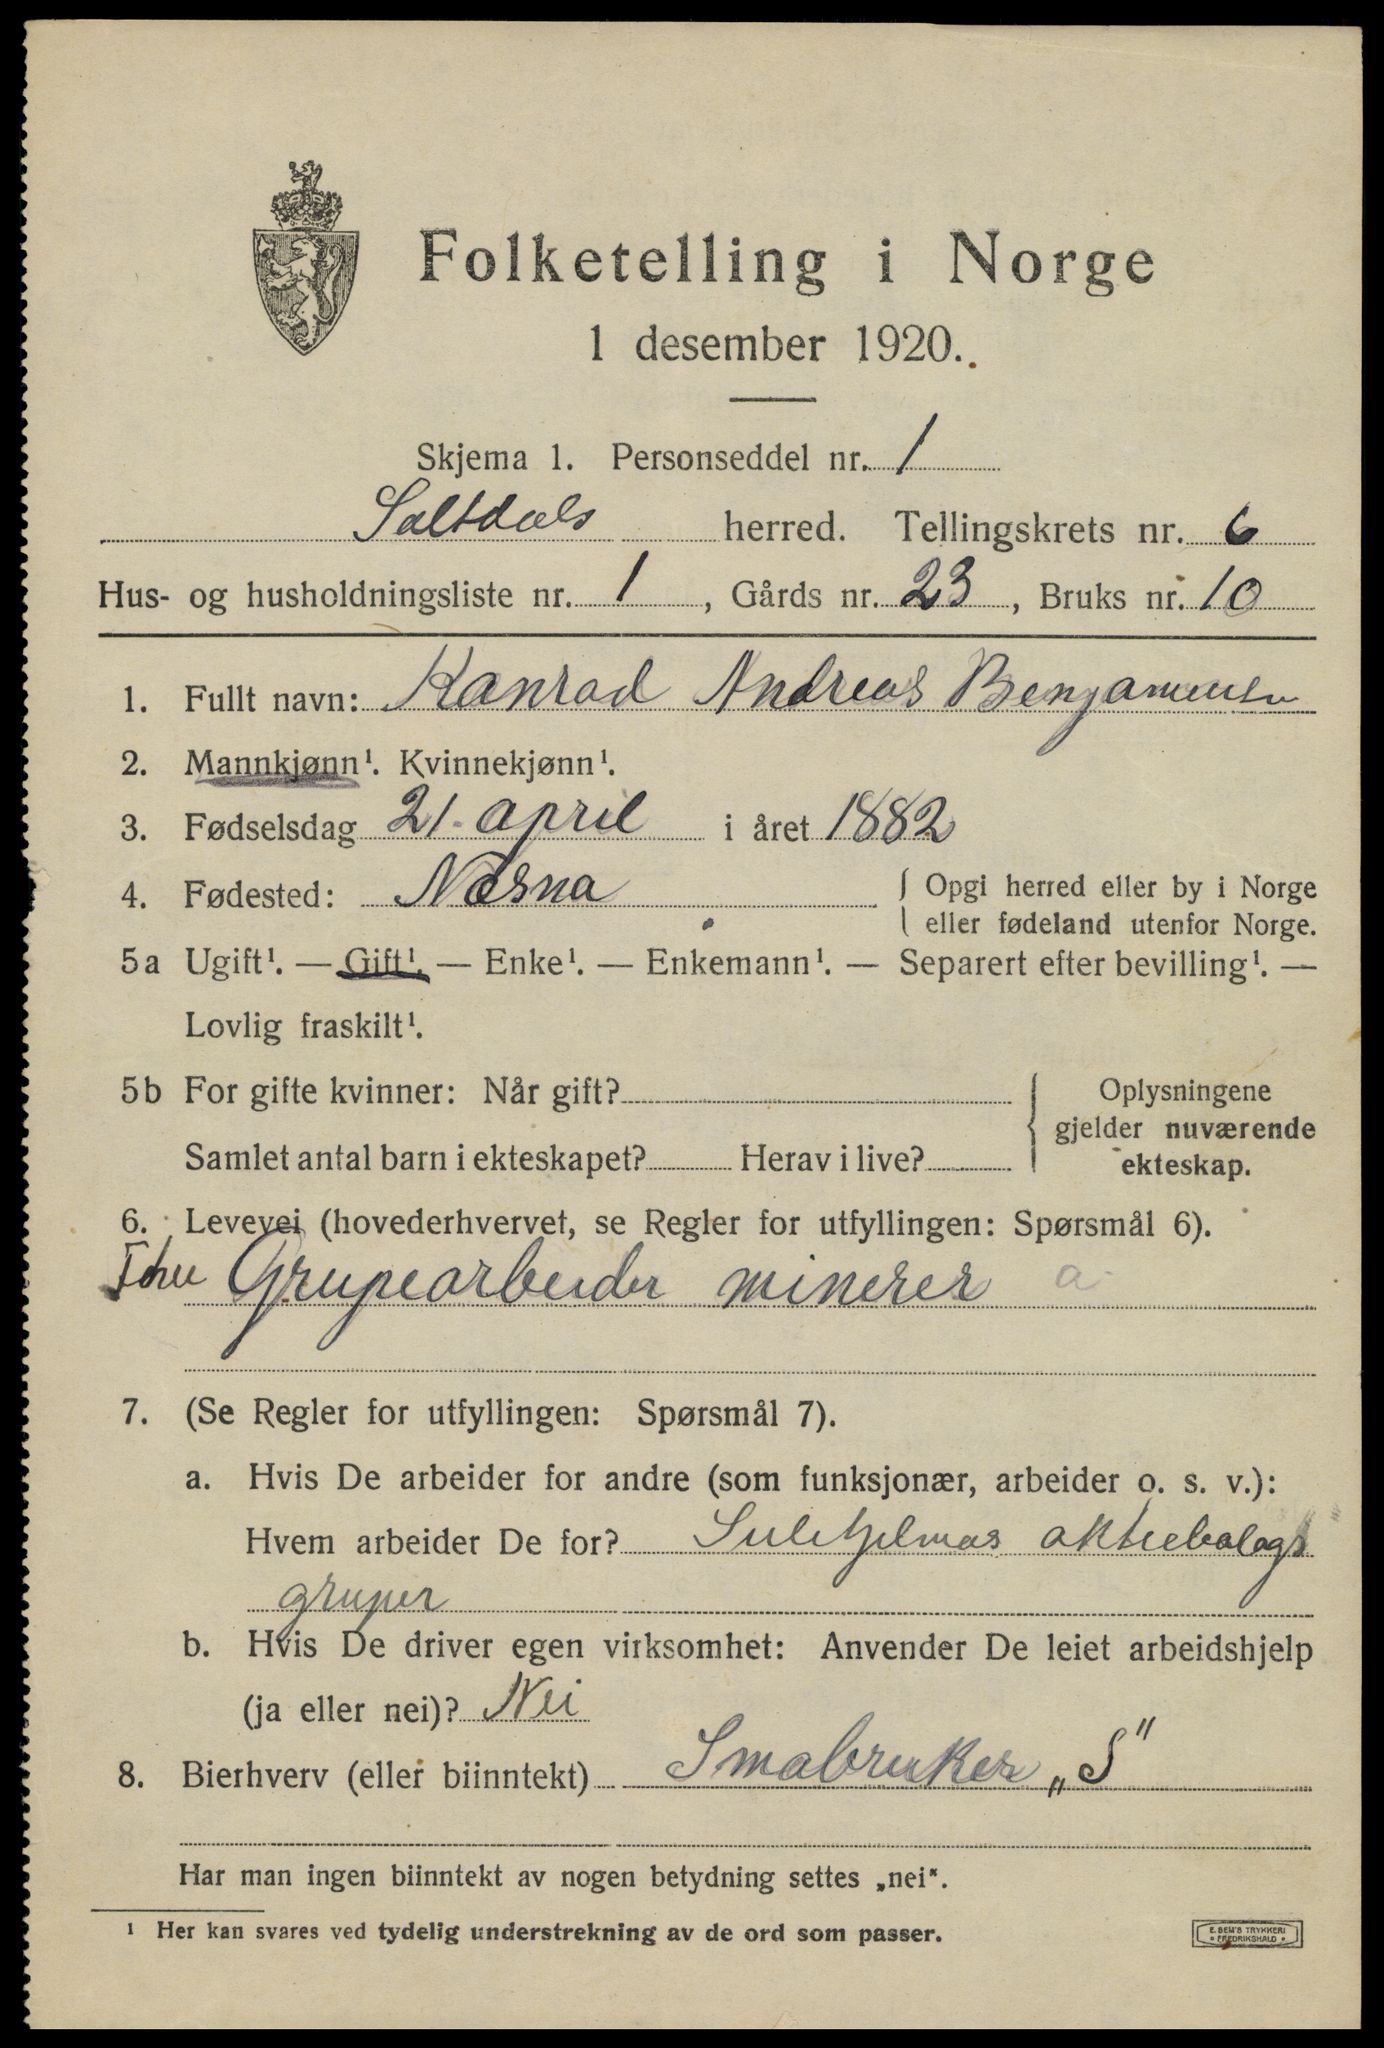 Folketelling i Norge
1 desember 1920.
Skjema 1. Personseddel nr. 1
Saltdals herred. Tellingskrets nr. 6
Hus- og husholdningsliste nr. 1, Gårds nr. 23, Bruks nr. 10
1. Fullt navn: Konrad Andreas Benjaminsen
2. Mannkjønn¹. Kvinnekjønn¹.
3. Fødselsdag 21. april i året 1882
4. Fødested: Næsna { Opgi herred eller by i Norge
eller fødeland utenfor Norge.
5a Ugift¹. — Gift¹. — Enke¹. — Enkemann¹. — Separert efter bevilling¹. —
Lovlig fraskilt¹.
5b For gifte kvinner: Når gift? { Oplysningene
gjelder nuværende
Samlet antal barn i ekteskapet? Herav i live? ekteskap.
6. Levevei (hovederhvervet, se Regler for utfyllingen: Spørsmål 6).
Grupearbeider minerer a
7. (Se Regler for utfyllingen: Spørsmål 7).
a. Hvis De arbeider for andre (som funksjonær, arbeider o. s. v.):
Hvem arbeider De for? Sulitjelmas aktiebolags
gruper
b. Hvis De driver egen virksomhet: Anvender De leiet arbeidshjelp
(ja eller nei)? Nei
8. Bierhverv (eller biinntekt) Smabruker „S"
Har man ingen biinntekt av nogen betydning settes „nei“.
¹ Her kan svares ved tydelig understrekning av de ord som passer.
E. SEM'S TRYKKERI
• FREDRIKSHALD •